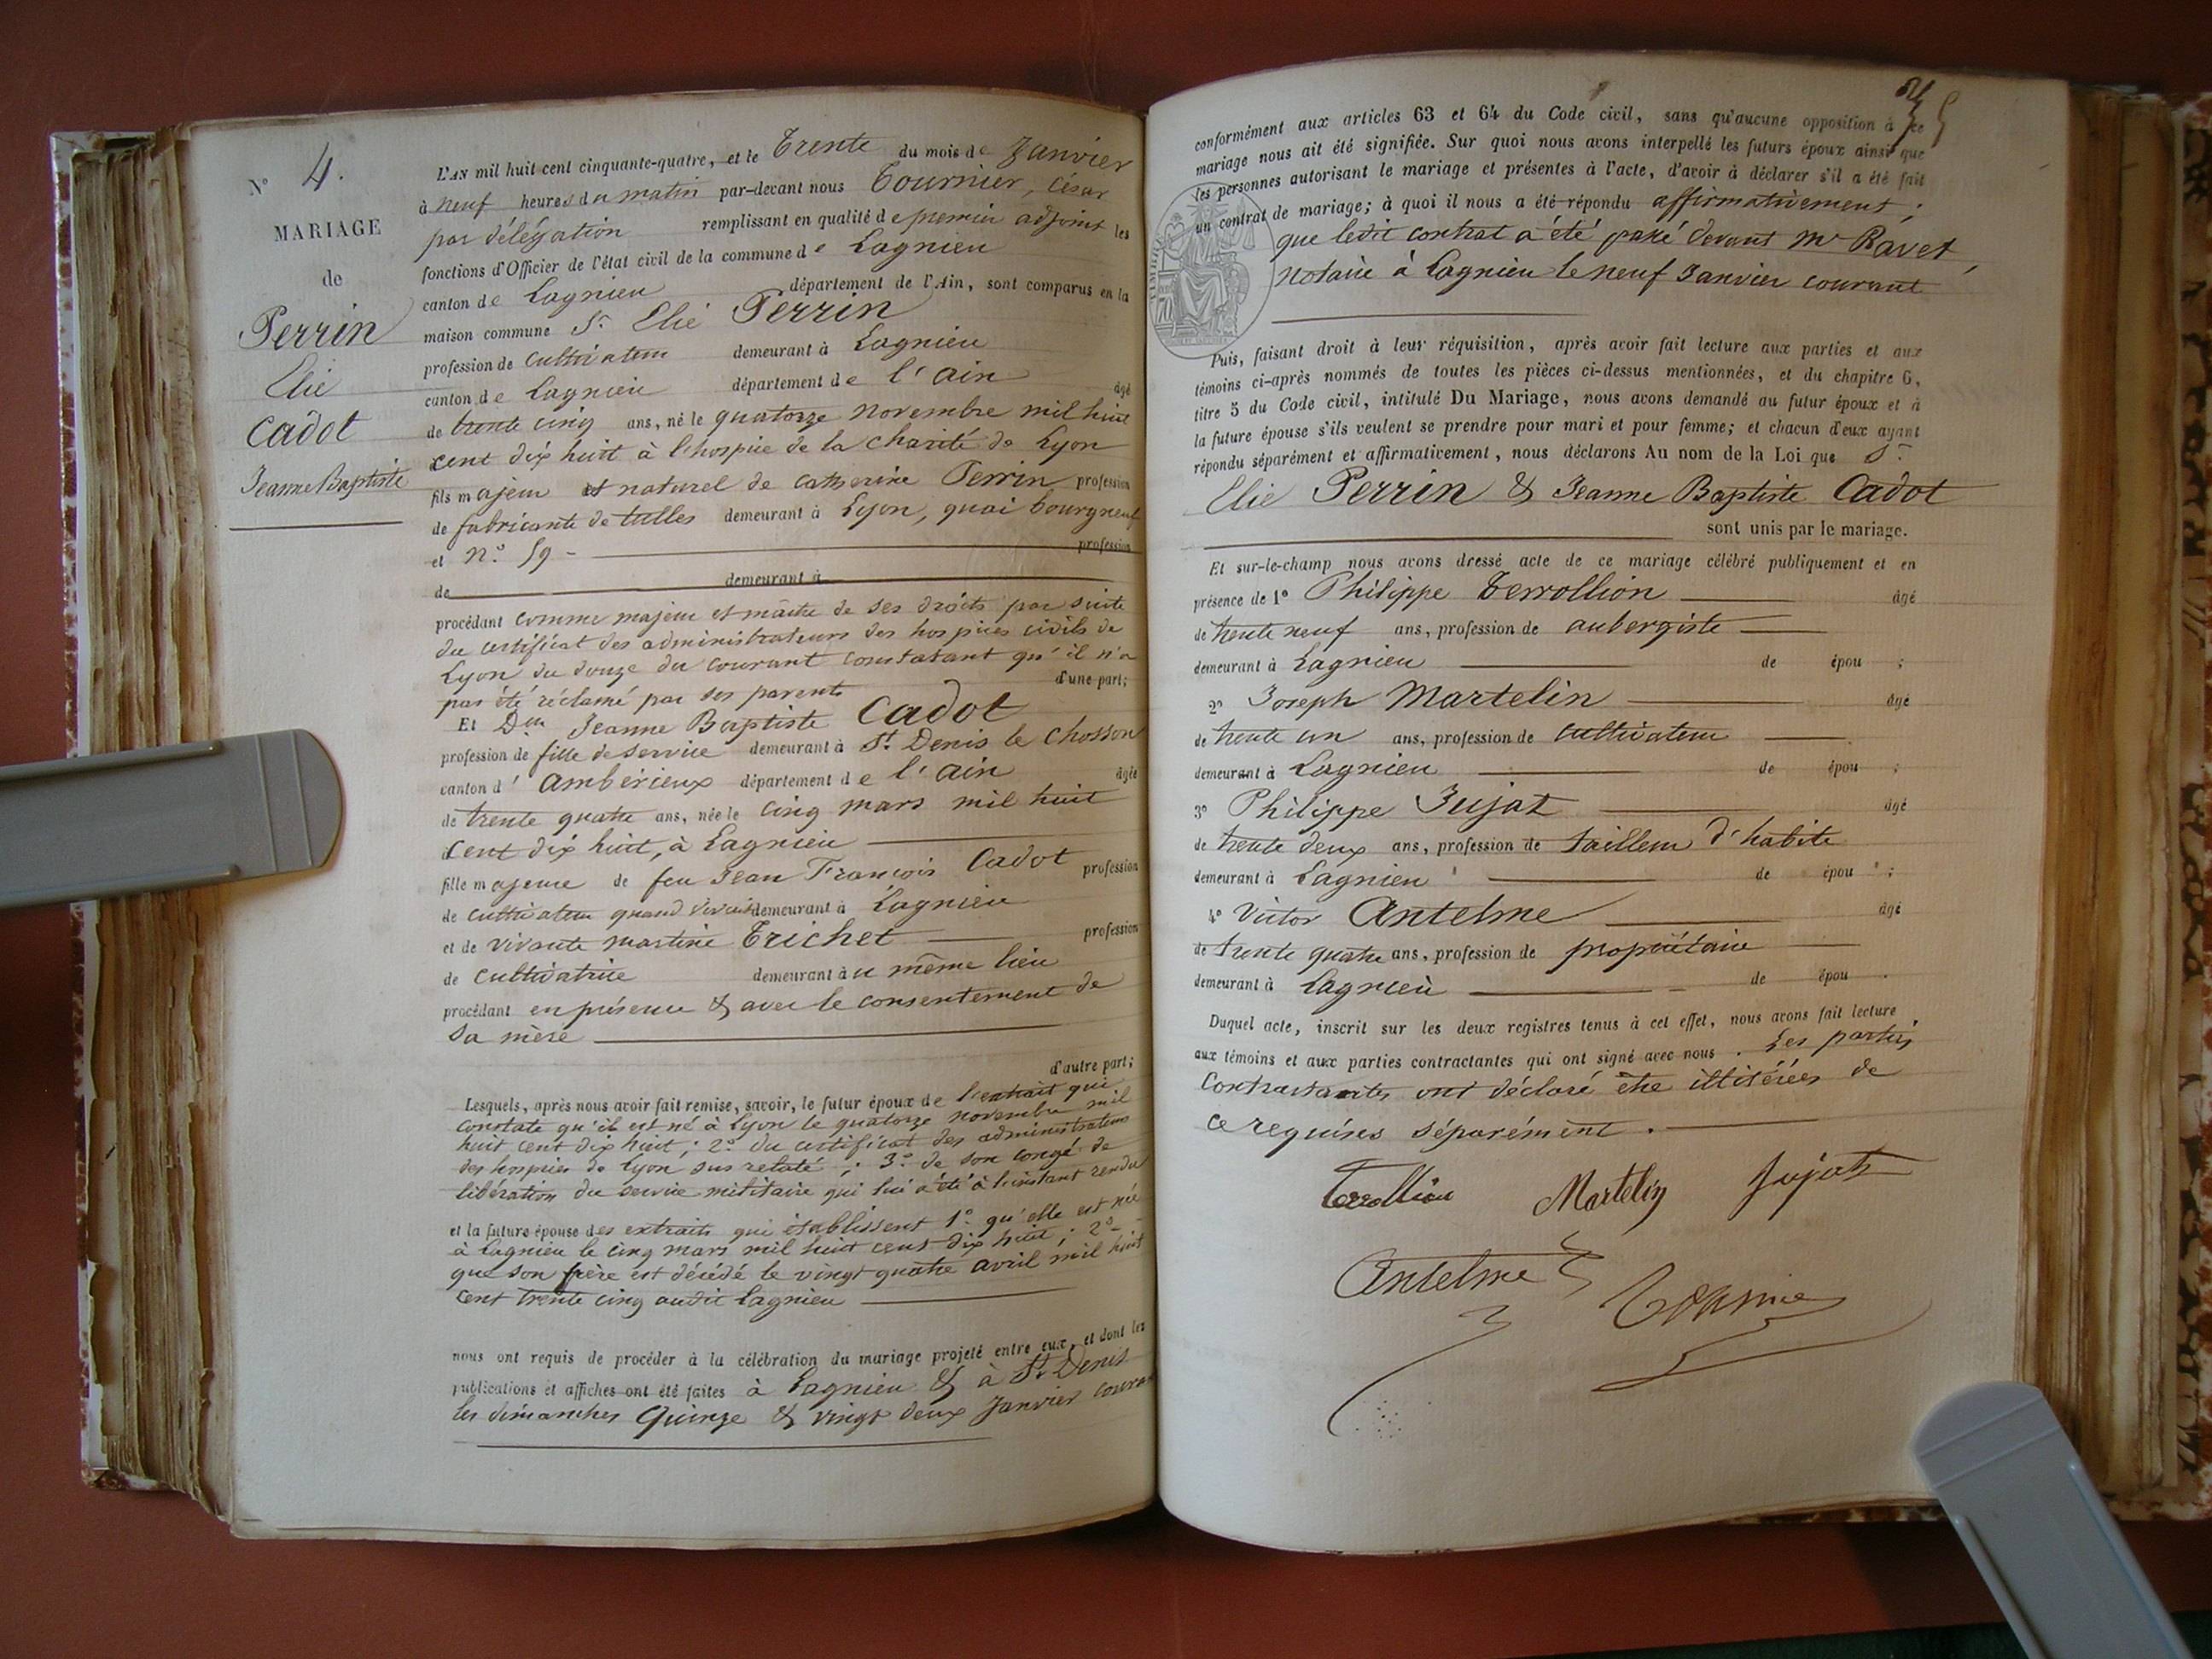 N° 4.
MARIAGE
de
Perrin
Elie
Cadot
Jeanne Baptiste
L'AN mil huit cent cinquante-quatre, et le Trente du mois de Janvier
à neuf heures du matin par-devant nous Tournier, César
par délégation remplissant en qualité de premier adjoint les
fonctions d'Officier de l'état civil de la commune de Lagnieu
canton de Lagnieu département de l'Ain, sont comparus en la
maison commune Sr Elie Perrin
profession de Cultivateur demeurant à Lagnieu
canton de Lagnieu département de l'Ain âgé
de trente cinq ans, né le quatorze novembre mil huit
cent dix huit à l'hospice de la Charité de Lyon
fils majeur et naturel de Catherine Perrin profession
de fabricante de tulles demeurant à Lyon, quai bourgneuf
et n° 59 - profession
de demeurant à
procédant comme majeur et maître de ses droits par suite
du certificat des administrateurs des hospices civils de
Lyon du douze du courant constatant qu'il n'a
pas été réclamé par ses parents d'une part;
Et Dlle Jeanne Baptiste Cadot
profession de fille de service demeurant à St Denis le Chosson
canton d'Ambérieux département de l'Ain âgée
de trente quatre ans, née le cinq mars mil huit
cent dix huit, à Lagnieu
fille majeure de feu Jean François Cadot profession
de cultivateur quand vivait demeurant à Lagnieu
et de vivante martine Trichet profession
de cultivatrice demeurant au même lieu
procédant en présence & avec le consentement de
sa mère
d'autre part;
Lesquels, après nous avoir fait remise, savoir, le futur époux de l'extrait qui
constate qu'il est né à Lyon le quatorze novembre mil
huit cent dix huit; 2° du certificat des administrateurs
des hospices de Lyon sus relaté; 3° de son congé de
libération du service militaire qui lui a été à l'instant rendu
et la future épouse des extraits qui établissent 1° qu'elle est née
à Lagnieu le cinq mars mil huit cent dix huit; 2°
que son père est décédé le vingt quatre avril mil huit
cent trente cinq audit Lagnieu
nous ont requis de procéder à la célébration du mariage projeté entre eux, et dont les
publications et affiches ont été faites à Lagnieu & à St Denis
les dimanches Quinze & vingt deux Janvier courant
conformément aux articles 63 et 64 du Code civil, sans qu'aucune opposition à ce
mariage nous ait été signifiée. Sur quoi nous avons interpellé les futurs époux ainsi que
les personnes autorisant le mariage et présentes à l'acte, d'avoir à déclarer s'il a été fait
un contrat de mariage; à quoi il nous a été répondu affirmativement;
que ledit contrat a été passé devant Me Ravet,
notaire à Lagnieu le neuf Janvier courant
TIMBRE
Puis, faisant droit à leur réquisition, après avoir fait lecture aux parties et aux
témoins ci-après nommés de toutes les pièces ci-dessus mentionnées, et du chapitre 6,
titre 5 du Code civil, intitulé Du Mariage, nous avons demandé au futur époux et à
la future épouse s'ils veulent se prendre pour mari et pour femme; et chacun d'eux ayant
répondu séparément et affirmativement, nous déclarons Au nom de la Loi que Sr
Elie Perrin & Jeanne Baptiste Cadot
sont unis par le mariage.
Et sur-le-champ nous avons dressé acte de ce mariage célébré publiquement et en
présence de 1° Philippe Terrollion âgé
de trente neuf ans, profession de aubergiste
demeurant à Lagnieu de épou ;
2° Joseph Martelin âgé
de trente un ans, profession de cultivateur
demeurant à Lagnieu de épou ;
3° Philippe Jujat âgé
de trente deux ans, profession de tailleur d'habits
demeurant à Lagnieu de épou ;
4° Victor Antelme âgé
de trente quatre ans, profession de propriétaire
demeurant à Lagnieu de épou .
Duquel acte, inscrit sur les deux registres tenus à cet effet, nous avons fait lecture
aux témoins et aux parties contractantes qui ont signé avec nous. Les parties
contractantes ont déclaré être illitérées de
ce requises séparément.
Terrollion Martelin Jujat
Antelme Tournier